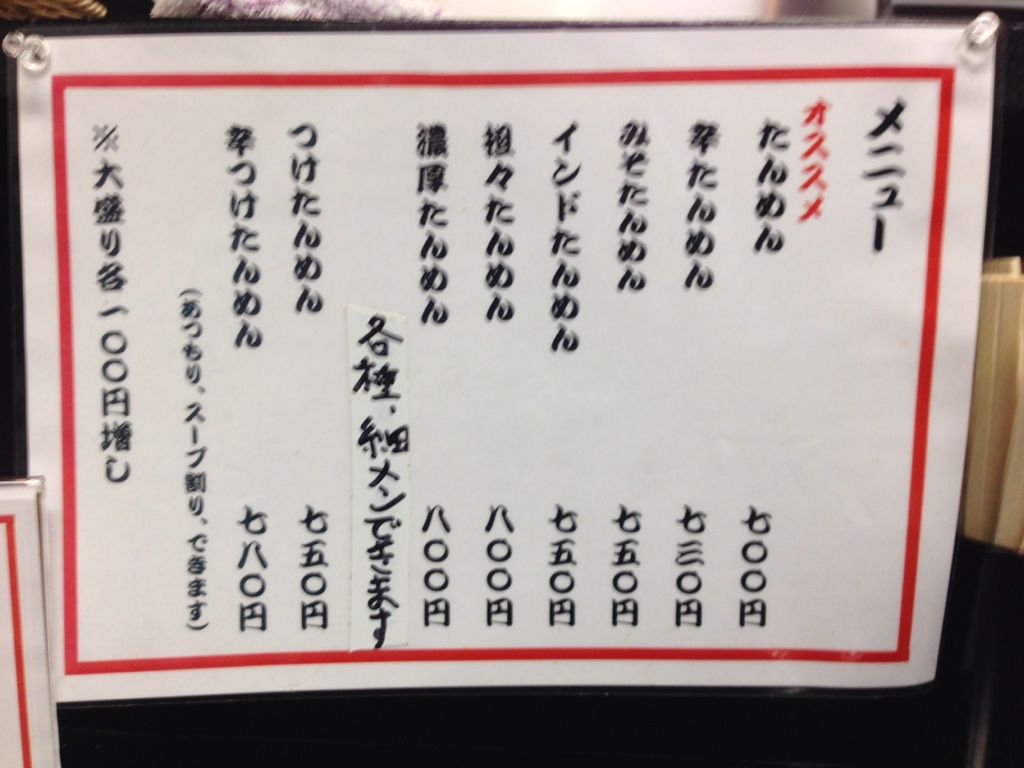 メニュー
オススメ
たんめん 七〇〇円
辛たんめん 七三〇円
みそたんめん 七五〇円
インドたんめん 七五〇円
担々たんめん 八〇〇円
濃厚たんめん 八〇〇円
各種・細メンできます
つけたんめん 七五〇円
辛つけたんめん 七八〇円
(あつもり、スープ割り、できます)
※大盛り各一〇〇円増し